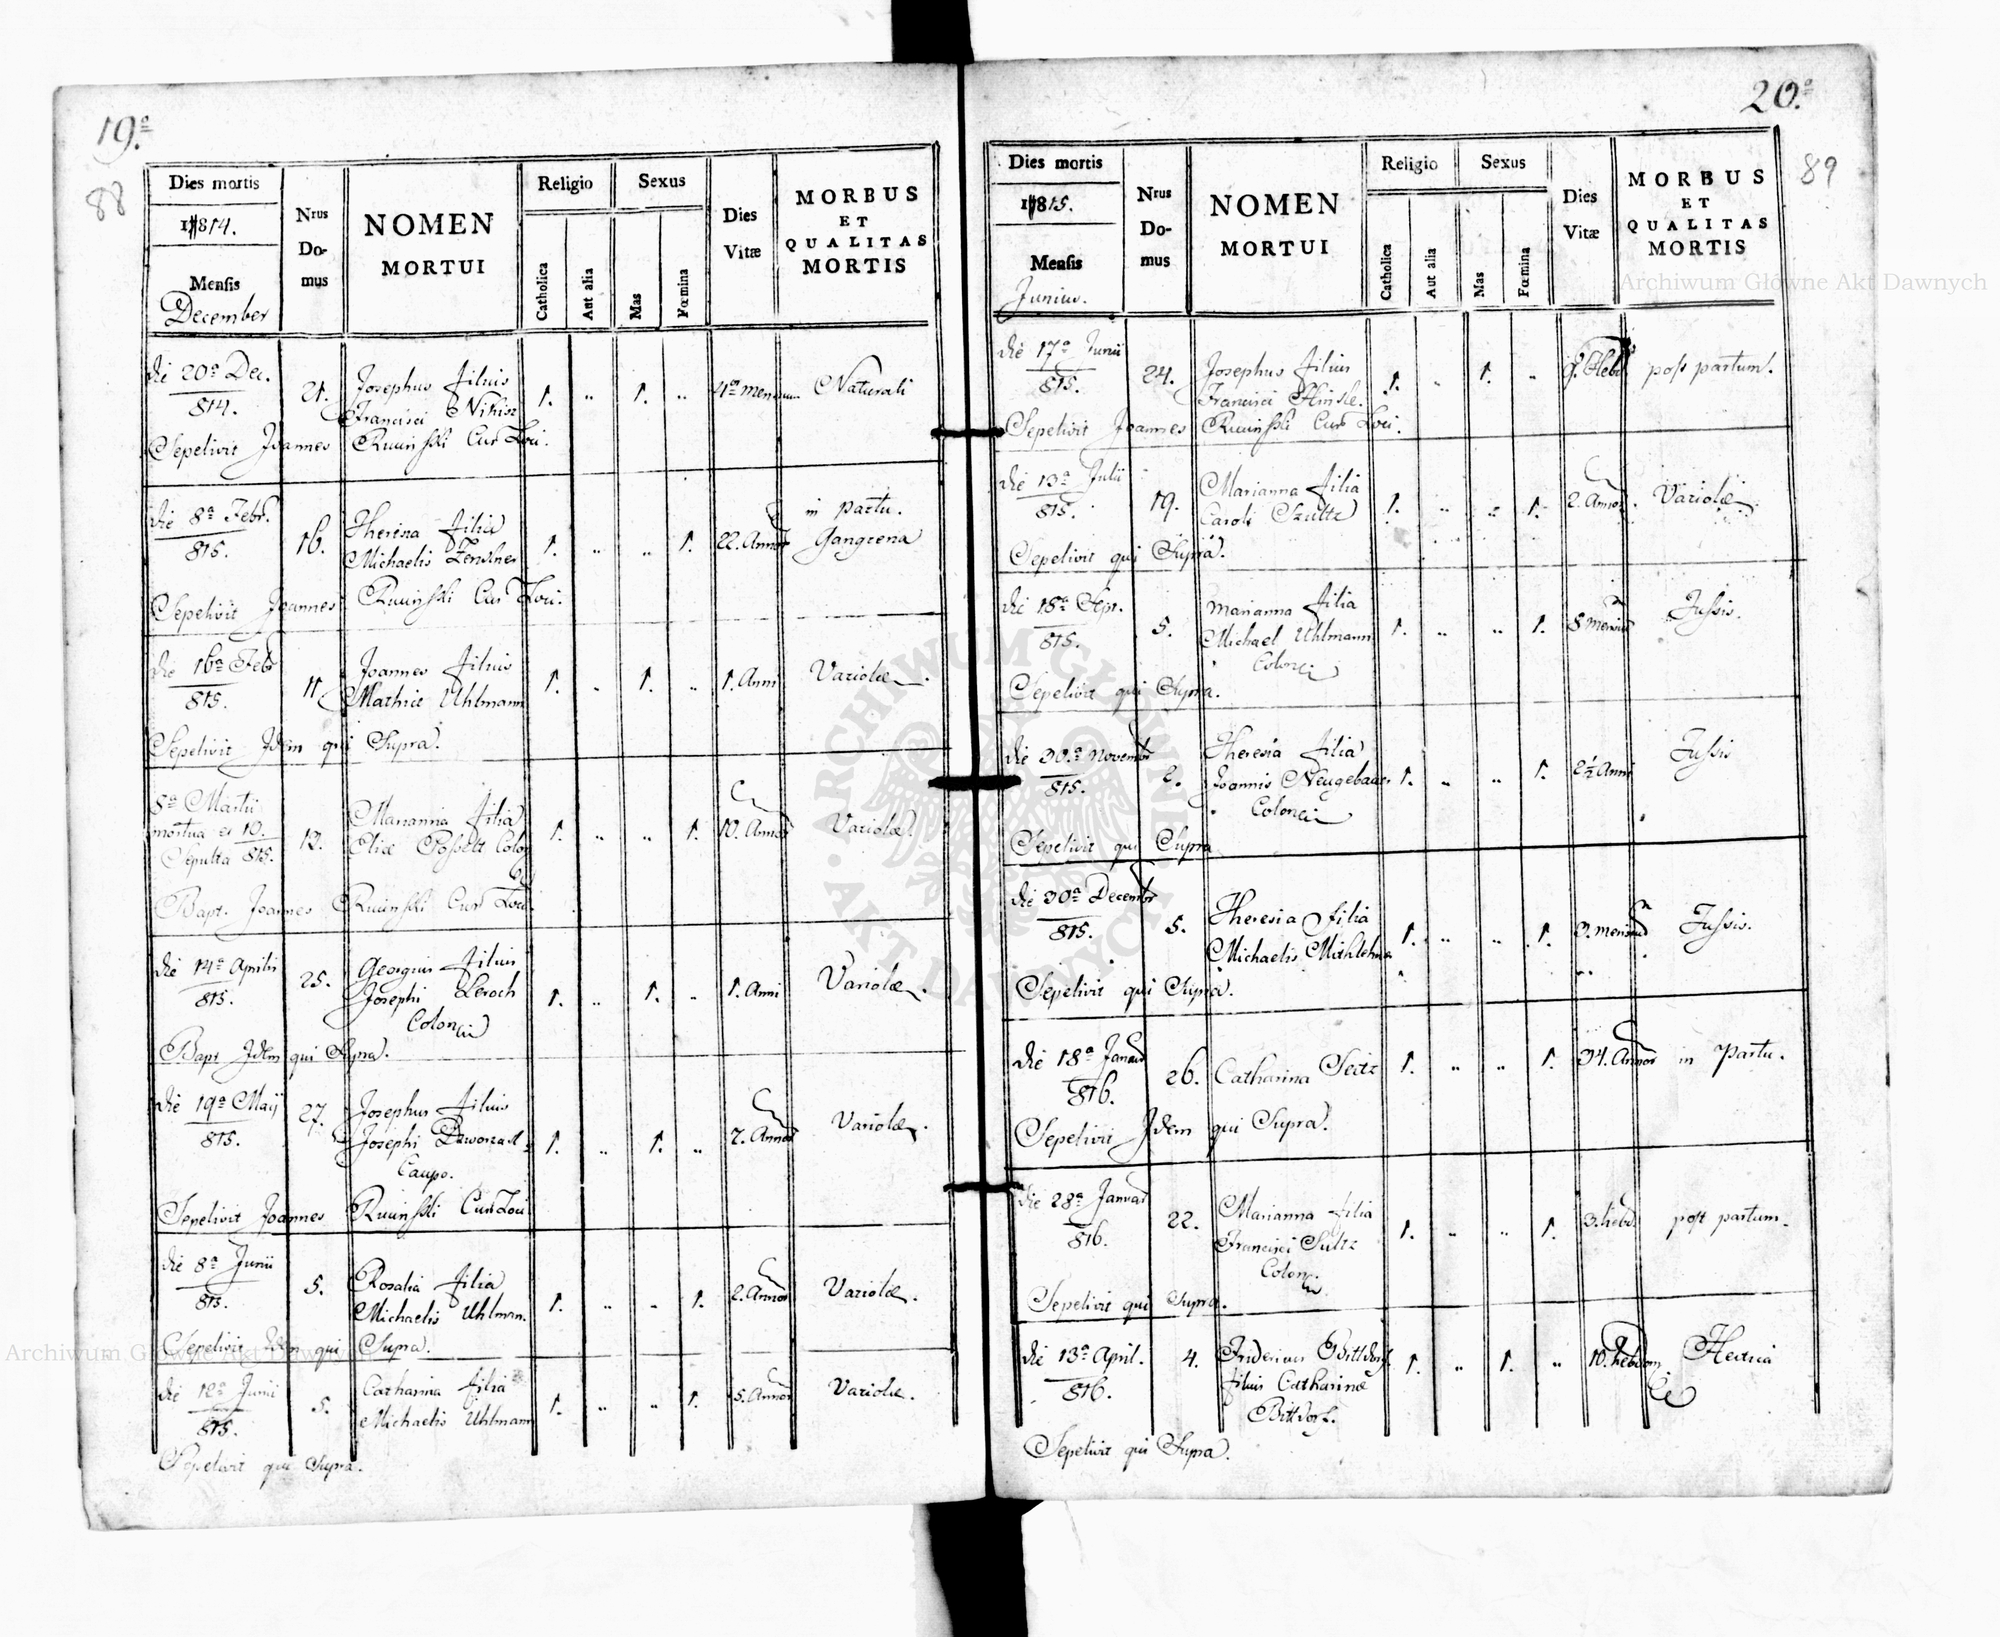 19.a
88
Dies mortis
1814.
Mensis
December
Nrus Do-mus
NOMEN
MORTUI
Religio
Catholica
Aut alia
Sexus
Mas
Fœmina
Dies
Vitæ
MORBUS
ET
QUALITAS
MORTIS
die 20a Dec.
814.
21.
Josephus filius
Francisci
1. " 1. "
4a mensium
Naturali
Sepelivit Joannes Ruciński Cur Loci.
die 8a Febr.
815.
16.
Theresia filia
Michaelis
1. " " 1.
22. Annor
in partu.
Gangrena
Sepelivit Joannes Ruciński Cur Loci.
die 16a Febr
815.
11.
Joannes filius
Mathiæ Uhlmann
1. " 1. "
1. Anni
Variolæ.
Sepelivit Idem qui Supra.
8a Martii
mortua et 10.
Sepulta 815.
12.
Marianna filia
Eliæ Posselt Coloni
1. " " 1.
10. Annor
Variolæ.
Bapt. Joannes Ruciński Cur Loci.
die 14a Aprilis
815.
25.
Georgius filius
Josephi Leroch
Coloni
1. " 1. "
1. Anni
Variolæ.
Bapt Idem qui Supra.
die 19a Maij
815.
27.
Josephus filius
Josephi
Caupo.
1. " 1. "
2. Annor
Variolæ.
Sepelivit Joannes Ruciński Cur Loci
die 8a Junii
815.
5.
Rosalia filia
Michaelis Uhlman.
1. " " 1.
2. Annor
Variolæ.
Sepelivit Idem qui Supra.
die 12a Junii
815.
5.
Catharina filia
Michaelis Uhlmann
1. " " 1.
5. Annor
Variolæ.
Sepelivit qui Supra.
20.a
89
Dies mortis
1815.
Mensis
Junius.
Nrus Do-mus
NOMEN
MORTUI
Religio
Catholica
Aut alia
Sexus
Mas
Fœmina
Dies
Vitæ
MORBUS
ET
QUALITAS
MORTIS
die 17a Junii
815.
24.
Josephus filius
Francisci
1. " 1. "
9. Hebd
post partum.
Sepelivit Joannes Ruciński Cur Loci.
die 13a Julii
815.
19.
Marianna filia
Caroli Szultz
1. " " 1.
2. Annor.
Variolæ.
Sepelivit qui Supra.
die 18a Sept.
815.
5.
Marianna filia
Michael Uhlmann
Coloni
1. " " 1.
8 mensium
Tussis.
Sepelivit qui Supra.
die 30.a Novembr
815.
2.
Theresia filia
Joannis Neugebauer
Coloni
1. " " 1.
2½ Anni
Tussis
Sepelivit qui Supra
die 30a Decembr
815.
5.
Theresia filia
Michaelis
1. " " 1.
3. mensium
Tussis.
Sepelivit qui Supra.
die 18a Januar
816.
26.
Catharina Seitz
1. " " 1.
34. Annor
in Partu.
Sepelivit Idem qui Supra.
die 28a Januar
816.
22.
Marianna filia
Francisci Sultz
Coloni
1. " " 1.
3. hebd.
post partum.
Sepelivit qui Supra.
die 13a April.
816.
4.
Fridericus Bittdorf
filius Catharinæ
Bittdorf.
1. " 1. "
10. hebdom.
Hectica
Sepelivit qui Supra.
Archiwum Główne Akt Dawnych
Archiwum Główne Akt Dawnych
ARCHIWUM GŁÓWNE AKT DAWNYCH